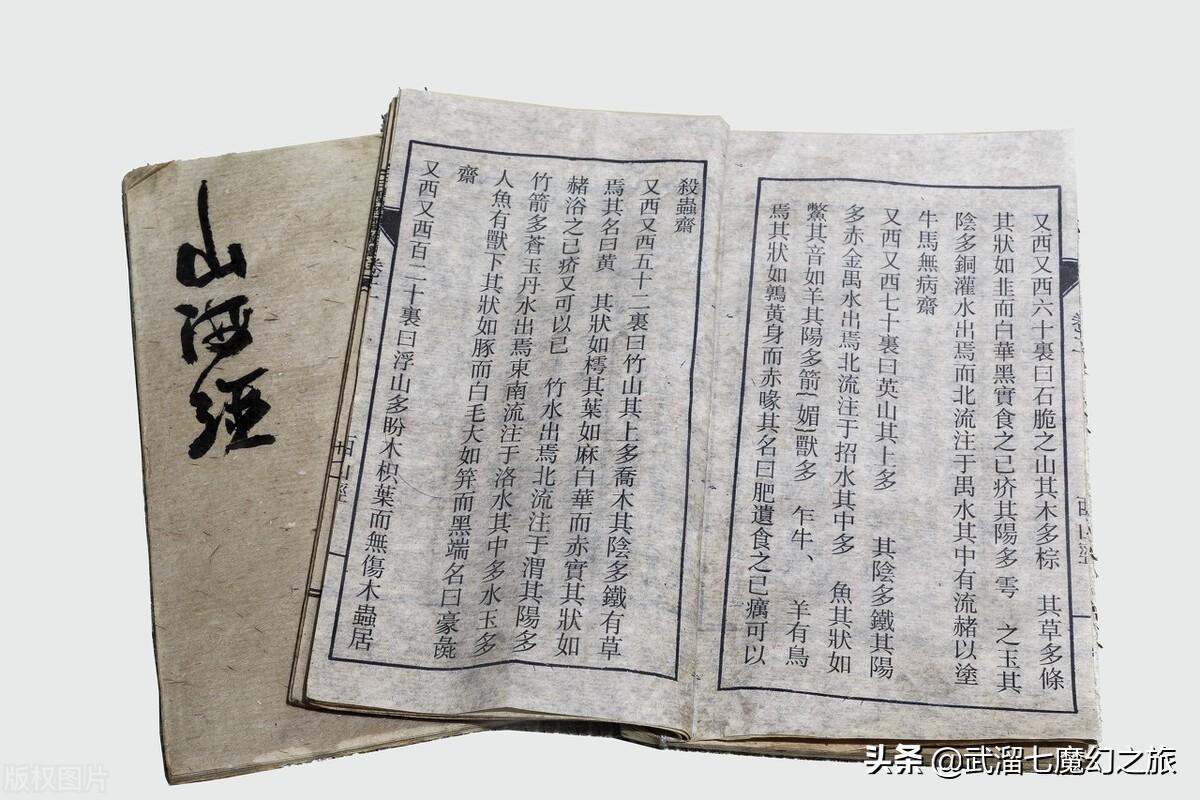 山海經
又西又西六十裏曰石脆之山其木多棕 其草多條
其狀如韭而白華黑實食之已疥其陽多雩 之玉其
陰多銅灌水出焉而北流注于禺水其中有流赭以塗
牛馬無病齋
又西又西七十裏曰英山其上多 其陰多鐵其陽
多赤金禺水出焉北流注于招水其中多 魚其狀如
鱉其音如羊其陽多箭{媚}獸多 乍牛、 羊有鳥
焉其狀如鶉黃身而赤喙其名曰肥遺食之已癘可以
殺蟲齋
又西又西五十二裏曰竹山其上多喬木其陰多鐵有草
焉其名曰黃 其狀如樗其葉如麻白華而赤實其狀如
赭浴之已疥又可以已 竹水出焉北流注于渭其陽多
竹箭多蒼玉丹水出焉東南流注于洛水其中多水玉多
人魚有獸下其狀如豚而白毛大如笄而黑端名曰豪彘
齋
又西又西百二十裏曰浮山多盼木枳葉而無傷木蟲居
西山經
头条 @武溜七魔幻之旅
版权图片